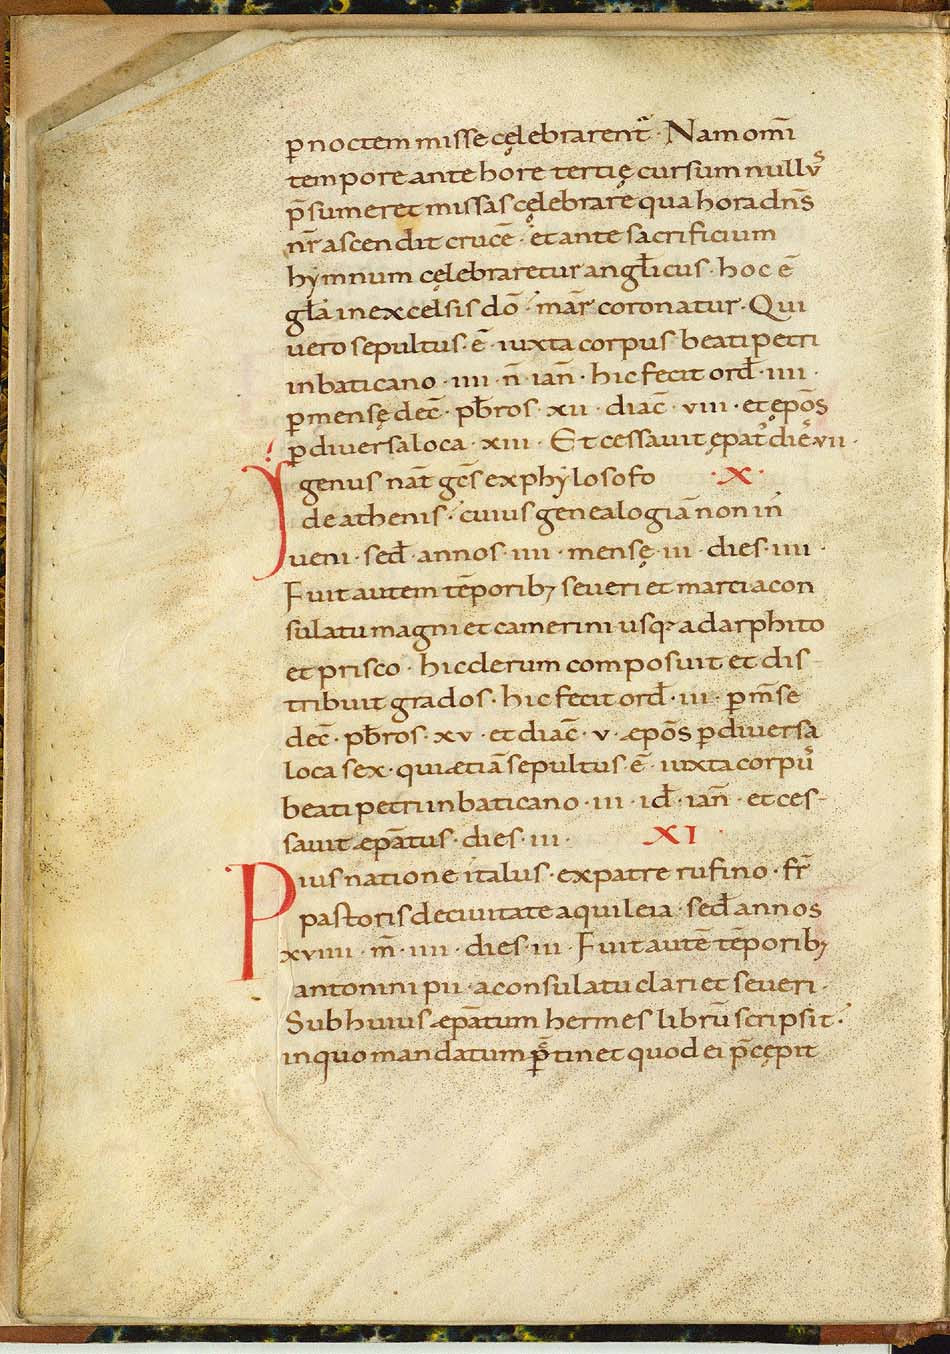 p̱noctem misse cęlebrarent᷑ · Nam om̅i
tempore ante hore tertię cursum nullvˢ
p̄sumeret missas cęlebrare qua hora dn̄s
nr̄ ascendit crucē · et ante sacrificium
hymnum cęlebraretur angl̄icus · hoc ē
gl̄a in excelsis dō · mar̄ coronatur · Qui
uero sepultus · ē · iuxta corpus beati petri
in baticano · iiii · n̄ · ian̄ · hic fecit ord̄ · iiii ·
p̱ mensę dec̄ · pb̄ros · xii · diac̄ · viii · et ep̄os
p̱ diuersa loca · xiii · Et cessauit ępat᷑ diē · vii ·
Ygenus nat̄ gc̄s ex phylosofo · X ·
de athenis · cuius genealogiā non in
ueni · sed̄ · annos · iiii · mensę · iii · dies · iiii ·
Fuit autem tēporib; seueri et marcia con
sulatu magni et camerini usq; ad arphito
et prisco · hic clerum composuit et dis-
tribuit grados · hic fecit ord̄ · iii · p̱ m̄se
dec̄ · pb̄ros · xv · et diac̄ · v · æpōs p̱ diuersa
loca sex · qui etiā sepultus · ē · iuxta corpuˢ
beati petri in baticano · iii · id̄ · ian̄ · et ces-
sauit æpātus · dies · iii · XI ·
Pius natione italus · ex patre rufino · fr̄
pastoris de ciuitate aquileia · sed̄ annos
xviiii · m̄ · iiii · dies · iii · Fuit autē tēporib;
antonini pii · a consulatu clari et seueri ·
Sub huius æpātum hermes librū scripsit ·
in quo mandatum p̱tinet quod ei p̄cępit